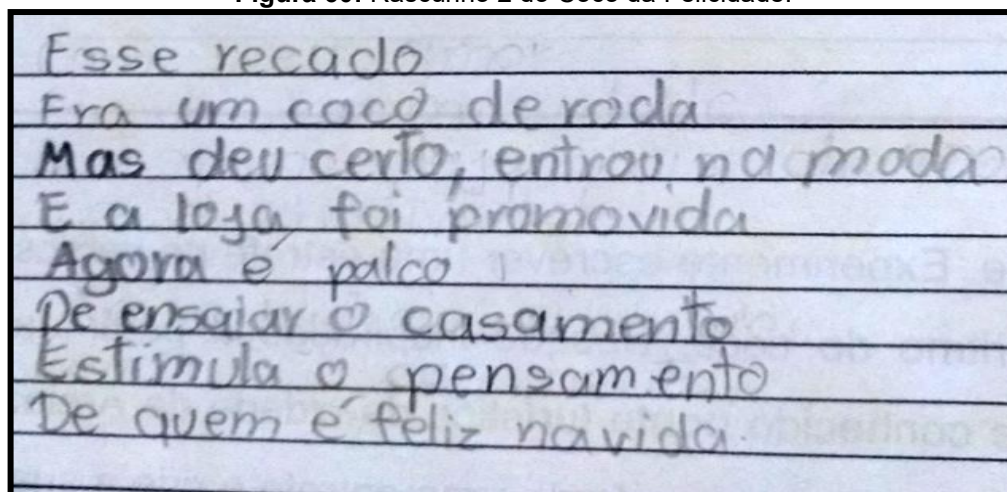 Esse recado
Era um coco de roda
Mas deu certo, entrou na moda
E a loja foi promovida
Agora é palco
De ensaiar o casamento
Estimula o pensamento
De quem é feliz na vida.